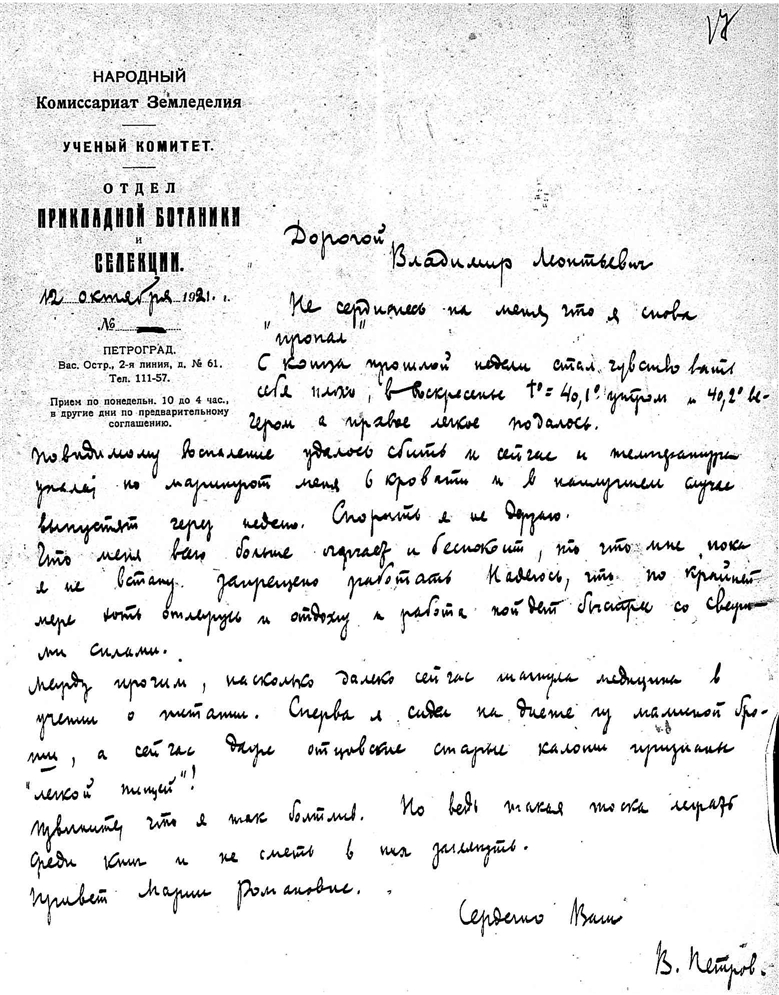 17
НАРОДНЫЙ
Комиссариат Земледелия
УЧЕНЫЙ КОМИТЕТ.
ОТДЕЛ
ПРИКЛАДНОЙ БОТАНИКИ
и
СЕЛЕКЦИИ.
12 октября 1921 г.
№
ПЕТРОГРАД.
Вас. Остр., 2-я линия, д. № 61.
Тел. 111-57.
Прием по понедельн. 10 до 4 час.,
в другие дни по предварительному
соглашению.
Дорогой
Владимир Леонтьевич
Не сердитесь на меня, что я снова
"пропал"
С конца прошлой недели стал чувствовать
себя плохо, в воскресенье t° = 40,1° утром и 40,2° ве-
чером а правое легкое подалось.
Повидимому воспаление удалось сбить и сейчас и температура
упала, но маринуют меня в кровати и в наилучшем случае
выпустят через неделю. Спорить я не дерзаю.
Что меня всего больше огорчает и беспокоит, то что мне, пока
я не встану, запрещено работать. Надеюсь, что по крайней
мере хоть отлежусь и отдохну и работа пойдет быстрее со свежи-
ми силами.
Между прочим, насколько далеко сейчас шагнула медицина в
учении о питании. Сперва я сидел на диете из
а сейчас даже отцовские старые калоши признаны
"легкой пищей"!
Извините, что я так болтлив. Но ведь такая тоска лежать
среди книг и не сметь в них заглянуть.
Привет Марии Романовне.
Сердечно Ваш
В. Петров.